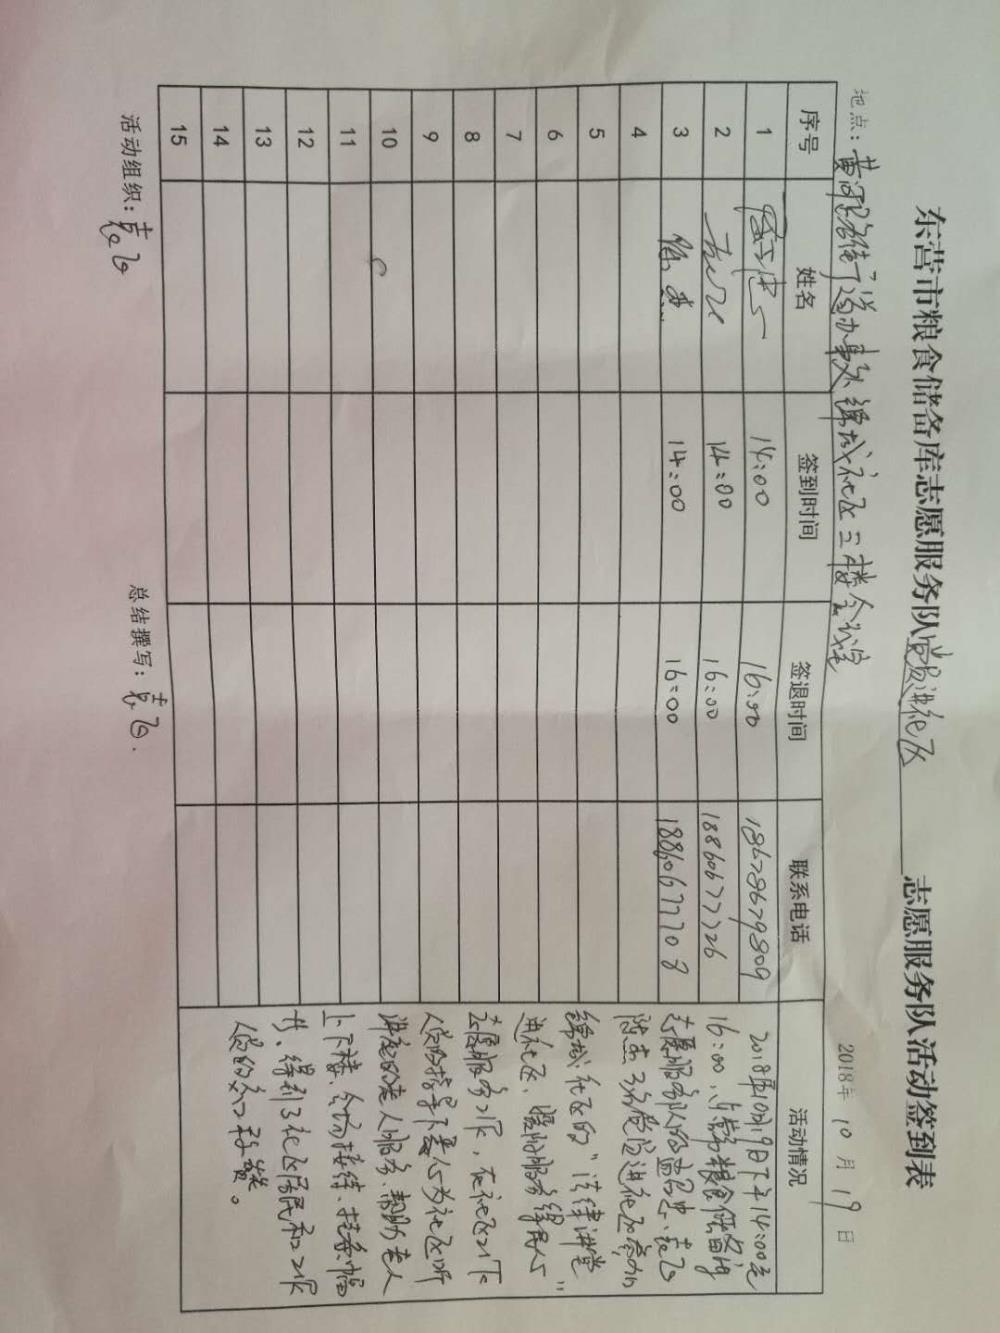 东营市粮食储备库志愿服务队党员进社区志愿服务队活动签到表
2018年10月19日
地点：黄河路街道办事处锦城社区二楼会议室
序号 姓名 签到时间 签退时间 联系电话 活动情况
1 14:00 16:00 18678679809
2 14:00 16:00 18860677726
3 14:00 16:00 18860677708
4
5
6
7
8
9
10
11
12
13
14
15
2018年10月19日下午14:00至
16:00，东营市粮食储备库
志愿服务队的孟昭忠、袁飞
陈杰3名党员进社区参加
锦城社区的“法律讲堂”
进社区，暖心服务得民心
志愿服务工作，在社区工作
人员的指导下主要为社区听
讲座的老人服务，帮助老人
上下楼、会场接待、挂条幅
等，得到了社区居民和工作
人员的一致
活动组织：袁飞 总结撰写：袁飞.